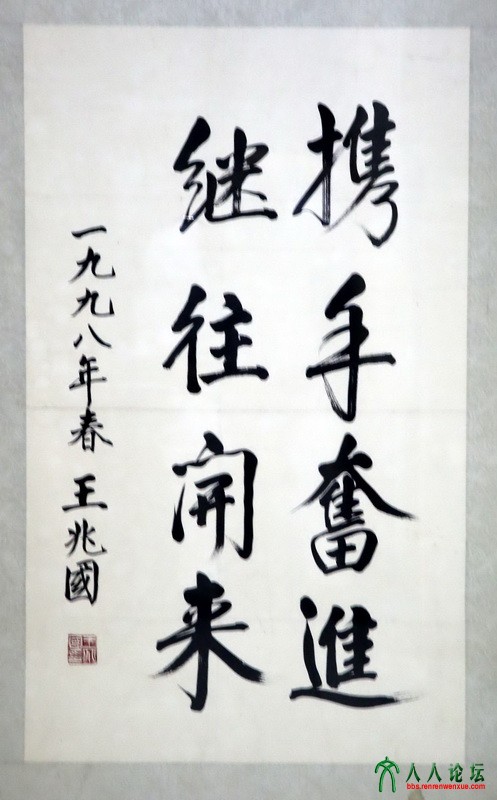 携手奮進
继往開来
一九九八年春 王兆國
人人论坛
bbs.renrenwenxue.com